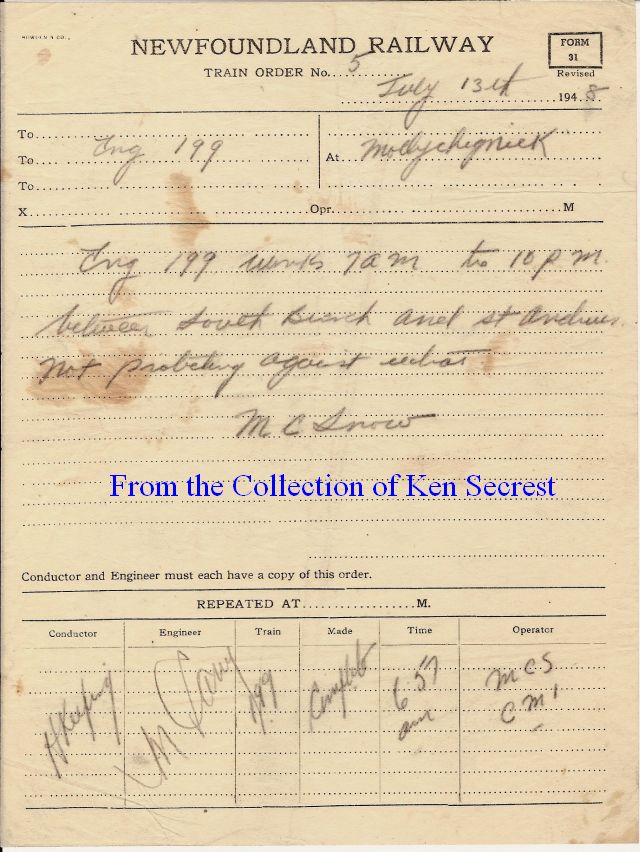 NEWFOUNDLAND RAILWAY
FORM
31
Revised
TRAIN ORDER No. 5
July 13th 1948
To
To Eng 199
At Mollychignick
To
X Opr. M
Eng 199 works 7 a m to 10 p m
between South Branch and st Andrews
not protecting against extras
M C Snow
From the Collection of Ken Secrest
Conductor and Engineer must each have a copy of this order.
REPEATED AT M.
Conductor Engineer Train Made Time Operator
Keeping 199 Complete 6 57 am MCS